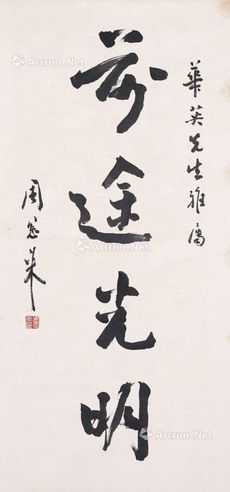 華英先生雅屬
前途光明
周恩來
Artron.Net
Artron.Net
Artron.Net
Artron.Net